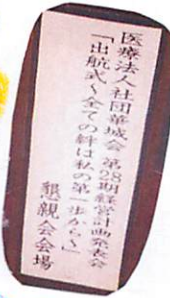 医療法人社団華城会 第28期経営計画発表会
「出航式〜全ての絆は私の第一歩から〜」
懇親会会場